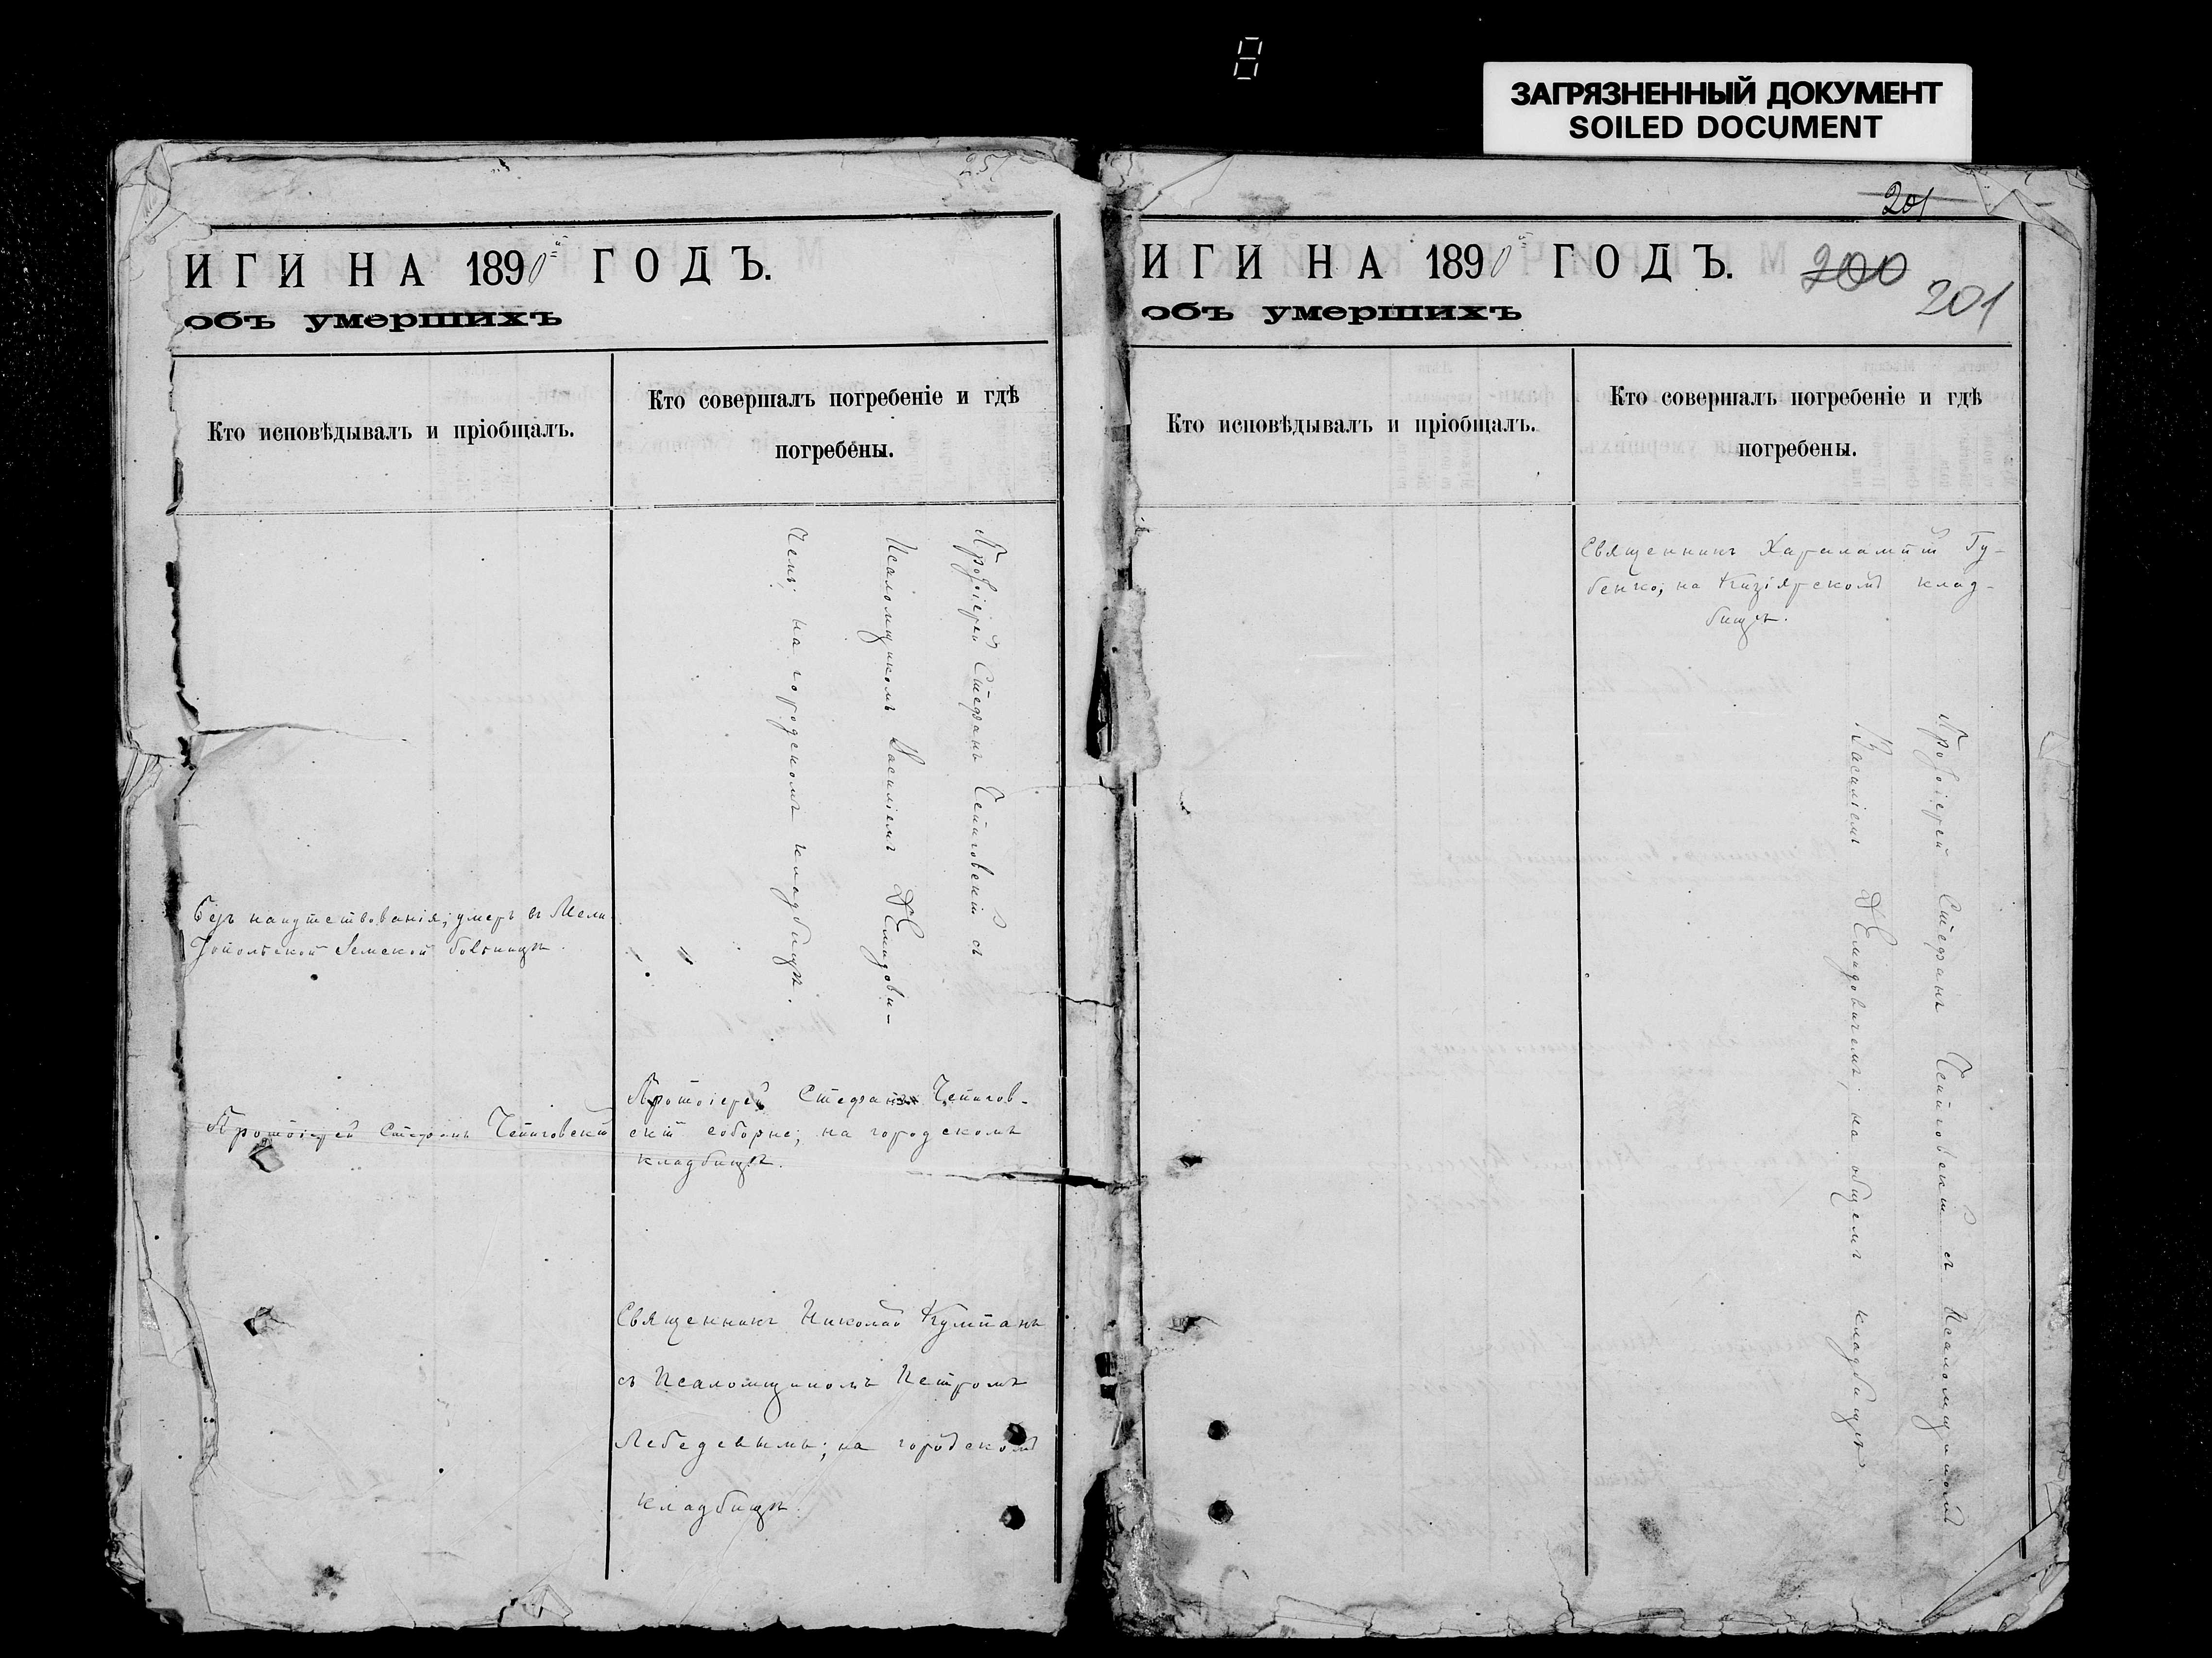 ЗАГРЯЗНЕННЫЙ ДОКУМЕНТ
SOILED DOCUMENT
25
ИГИ НА 1890й ГОДЪ.
объ умершихъ
Кто исповѣдывалъ и пріобщалъ.
Кто совершалъ погребеніе и гдѣ
погребены.
Протоіерей Стефанъ Чепиговскій съ
Псаломщикомъ Василіемъ Демидови-
чемъ; на городскомъ кладбищѣ.
Безъ напутствованія; умеръ въ Мели
топольской Земской больницѣ.
"
Протоіерей Стефанъ Чепиговскій
Протоіерей Стефанъ Чепигов-
скій соборне; на городскомъ
кладбищѣ.
Священникъ Николай Кумпанъ
съ Псаломщикомъ Петромъ
Лебедевымъ; на городскомъ
кладбищѣ.
201
ИГИ НА 1890й ГОДЪ.
200
201
объ умершихъ
Кто исповѣдывалъ и пріобщалъ.
Кто совершалъ погребеніе и гдѣ
погребены.
Священникъ Харалампій Гу-
бенко; на Кизіярскомъ клад-
бищѣ.
Протоіерей Стефанъ Чепиговскій съ Псаломщикомъ
Василіемъ Демидовичемъ; на общемъ кладбищѣ